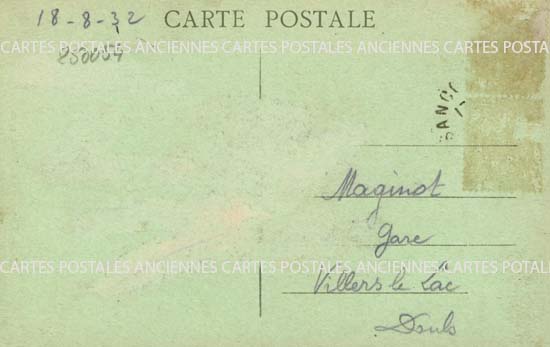 18-8-32 CARTE POSTALE
CARTES POSTALES ANCIENNES CARTES POSTALES ANCIENNES CARTES POSTALES
Maginot
Gare
CARTES POSTALES ANCIENNES CARTES POSTALES ANCIENNES CARTES POTALES
Villers le Lac
Doubs